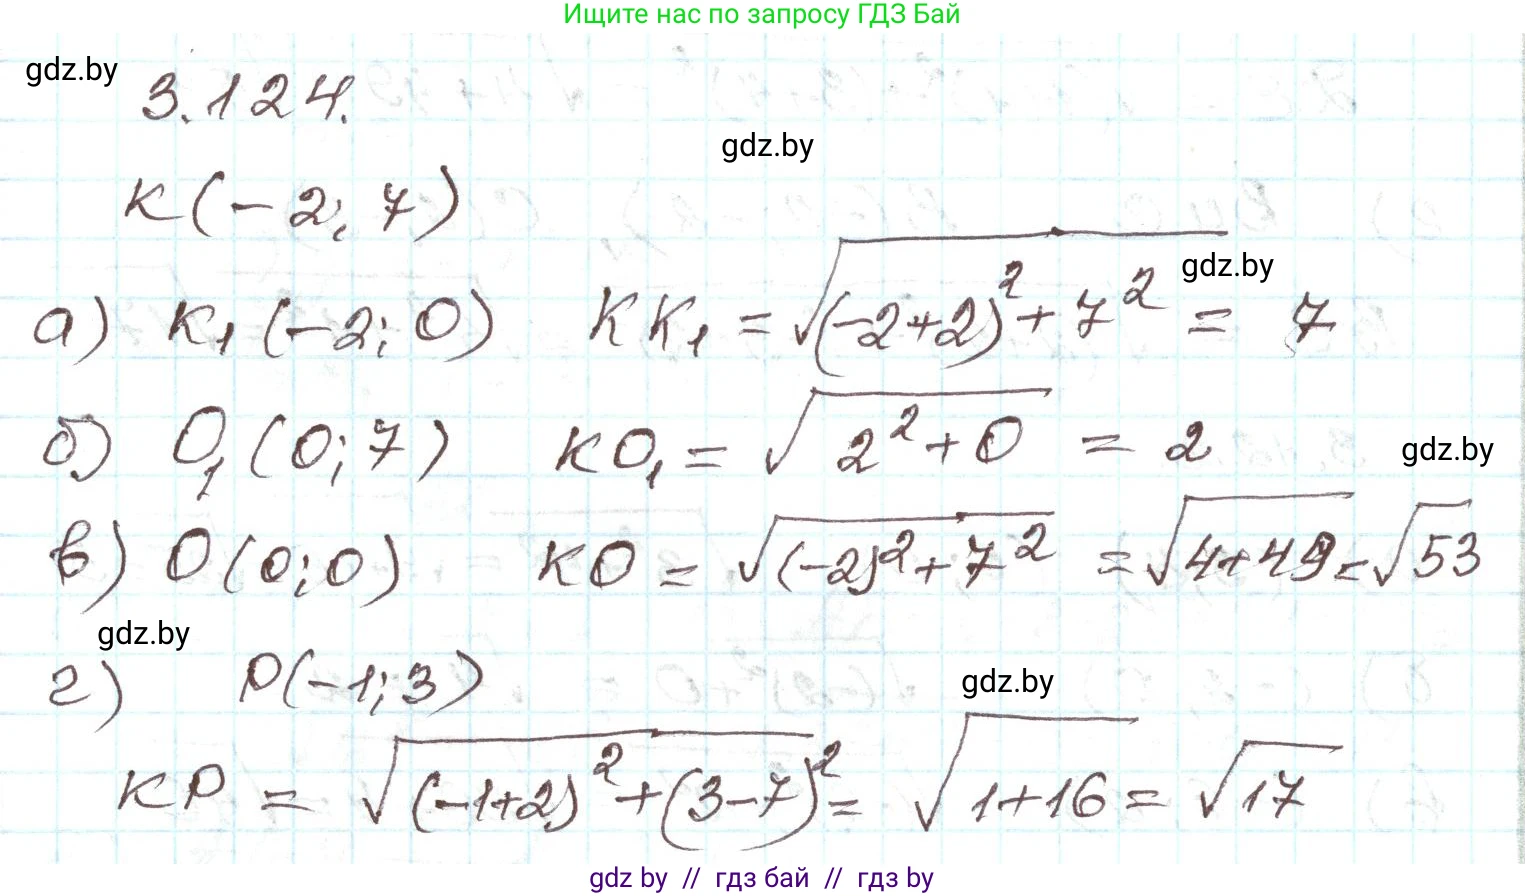 Ищите нас по запросу ГДЗ Бай
gdz.by
3.124.
gdz.by
К(-2; 7)
gdz.by
а) К₁(-2; 0) КК₁ = √((-2+2)² + 7²) = 7
б) О₁(0; 7) КО₁ = √(2² + 0) = 2
gdz.by
в) О(0; 0) КО = √((-2)² + 7²) = √(4+49) = √53
gdz.by
г) Р(-1; 3)
gdz.by
КР = √((-1+2)² + (3-7)²) = √(1+16) = √17
gdz by // гдз бай // гдз by